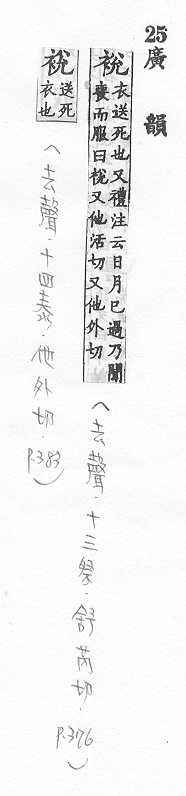 25廣韻
裞
衣送死也又禮注云日月已過乃聞
喪而服曰裞又他活切又他外切
(去聲．十三祭．舒芮切．P.376)
裞
送死
衣也
(去聲．十四泰．他外切．P.383)